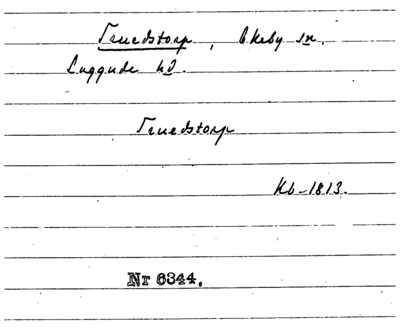 Truedstorp, Ekeby sn.
Luggude hd.
Truedstorp
Kb. 1813.
Nr 6344.